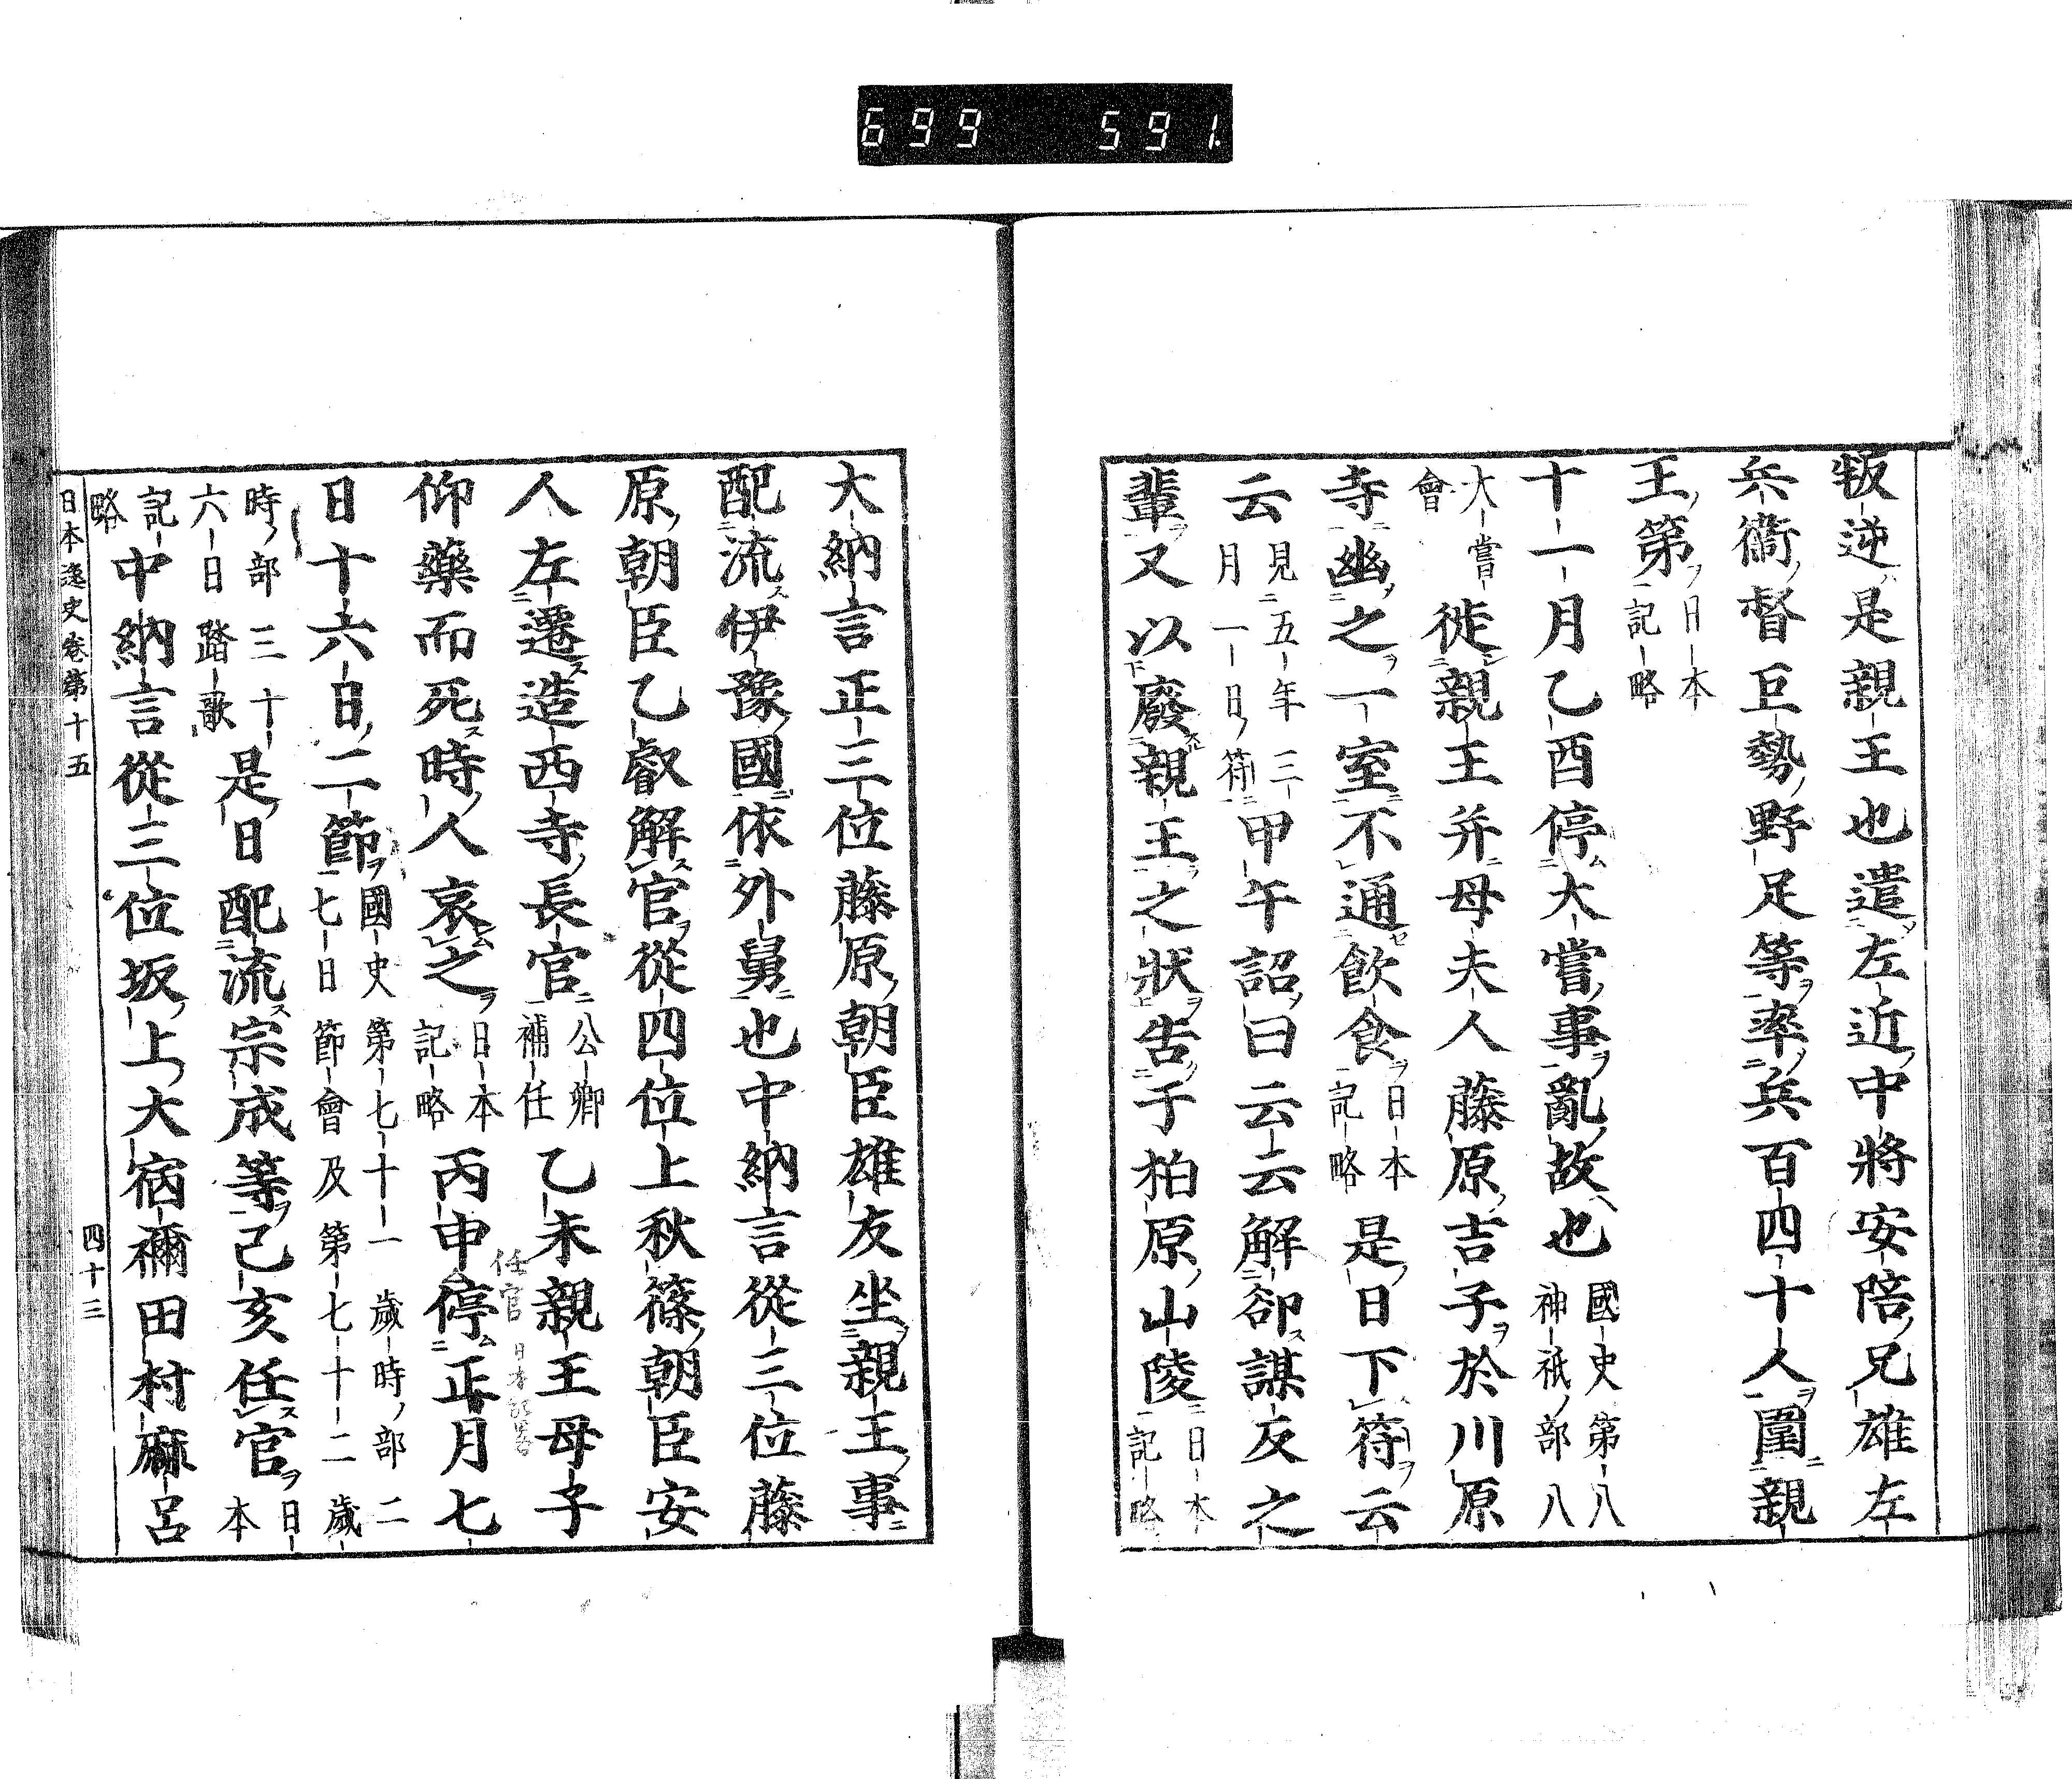 699 591.
叛逆是親王也遣左近中將安陪兄雄左
兵衞督巨勢野足等率兵百四十人圍親
王第日本記略
十一月乙酉停大嘗事亂故也國史第八十八神祇部八
大嘗會徙親王并母夫人藤原吉子於川原
寺幽之一室不通飲食日本記略是日下符云
云見五年三月一日符甲午詔曰云云解卻謀反之
輩又以廢親王之狀告于柏原山陵日本記略
大納言正三位藤原朝臣雄友坐親王事
配流伊豫國依外舅也中納言從三位藤
原朝臣乙叡解官從四位上秋篠朝臣安
人左遷造西寺長官公卿補任乙未親王母子
仰藥而死時人哀之日本記略丙申停正月七
任官日本記畧
日十六日二節國史第七十一歲時部二七日節會及第七十二歲
時部三十六日踏歌是日配流宗成等己亥任官日本
記略中納言從三位坂上大宿禰田村麻呂
日本逸史卷第十五
四十三